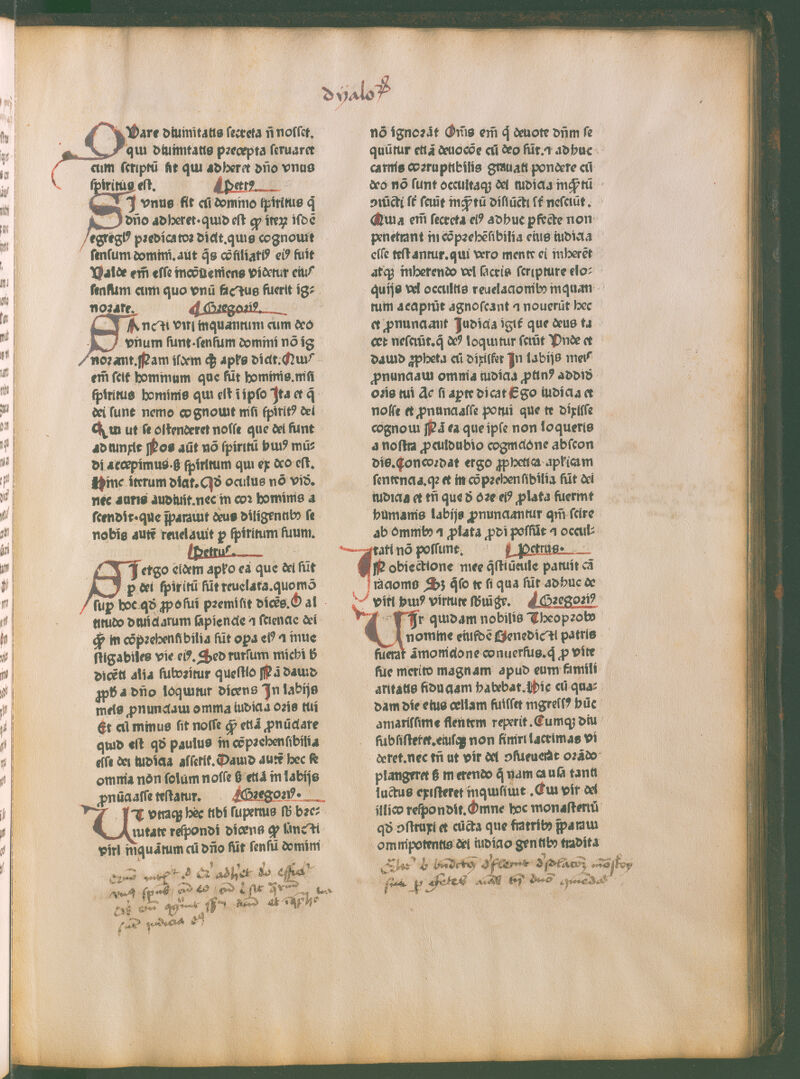 dyaloꝝ
QUare diuinitatis secreta nō nosset.
qui diuinitatis precepta seruaret
cum scriptū sit qui adheret dño vnus
spiritus est. Petrꝰ
SI vnus fit cū domino spiritus q̄
dño adheret·quid est ꝙ iteꝝ isdē
egregiꝰ predicator dicit.quis cognouit
sensum domini.aut q̄s cōsiliariꝰ eiꝰ fuit
Valde em̄ esse incōueniens videtur eiuꝰ
sensum cum quo vnū factus fuerit ig⸗
norare. Gregoriꝰ.
SAncti viri inquantum cum deo
vnum sunt·sensum domini nō ig
norant.Nam isdem ꝙ apl̄s dicit.Quiꝰ
em̄ scit hominum que sūt hominis.nisi
spiritus hominis qui est ī ipso Ita et q̄
dei sunt nemo cognouit nisi spiritꝰ dei
Qui ut se ostenderet nosse que dei sunt
adiunxit Nos aūt nō spiritū huiꝰ mū⸗
di accepimus.ß spiritum qui ex deo est.
Hinc iterum dicit.Qd̄ oculus nō vid̄.
nec auris audiuit.nec in cor hominis a
scendit·que p̄parauit deus diligentibꝰ se
nobis autē reuelauit ꝑ spiritum suum.
Petruꝰ.
SI ergo eidem apl̄o ea que dei sūt
ꝑ dei spiritū sūt reuelata.quomō
suꝑ hoc qd̄ ꝓposui premisit dicēs.O al
titudo diuiciarum sapiencie ⁊ sciencie dei
ꝙ̄ in cōprehensibilia sūt oꝑa eiꝰ ⁊ inue
stigabiles vie eiꝰ.Sed rursum michi h̄
dicēti alia suboritur questio Nā dauid
ꝓph̄a a dño loquitur dicens In labijs
meis ꝓnunciaui omnia iudicia oris tui
Et cū minus sit nosse ꝙ̄ etiā ꝓnūciare
quid est qd̄ paulus in cōprehensibilia
esse dei iudicia asserit.Dauid autē hec se
omnia non solum nosse ß etiā in labijs
ꝓnūciasse testatur. Gregoriꝰ·
UT vtraqꝫ hec tibi superius sb̄ bre⸗
uitate respondi dicens ꝙ sancti
viri inquātum cū dño sūt sensū domini
nō ignorāt Om̄s em̄ q̄ deuote dn̄m se
quūtur etiā deuocōe cū deo sūt.⁊ adhuc
carnis corruptibilis grauati pondere cū
deo nō sunt occultaqꝫ dei iudicia inꝙ̄tū
ꝯiūcti sē sciūt inꝙ̄tū disiūcti sē nesciūt.
Quia em̄ secreta eiꝰ adhuc ꝑfecte non
penetrant in cōprehēsibilia eius iudicia
esse testantur.qui vero mente ei inherēt
atqꝫ inherendo vel sacris scripture elo⸗
quijs vel occultis reuelacionibꝰ inquan
tum acapiūt agnoscant ⁊ nouerūt hec
et ꝓnunciant Iudicia igit̄ que deus ta
cet nesciūt.q̄ deꝰ loquitur sciūt Vnde et
dauid ꝓpheta cū dixisset In labijs meiꝰ
ꝓnunciaui omnia iudicia ꝓtinꝰ addid̄
oris tui Ac si aꝑte dicat Ego iudicia et
nosse et ꝓnunciasse potui que te dixisse
cognoui Nā ea que ipse non loqueris
a nostra ꝓculdubio cognicione abscon
dis.Concordat ergo ꝓphetica apl̄icam
sentencia.qꝛ et in cōprehensibilia sūt dei
iudicia et tn̄ que d̄ ore eiꝰ ꝓlata fuerint
humanis labijs ꝓnunciantur qm̄ scire
ab omnibꝰ ⁊ ꝓlata ꝓdi possūt ⁊ occul⸗
tari nō possunt. Petrus·
Nobiectione mee q̄stiūcule patuit cā
racionis Sꝫ q̄so te si qua sūt adhuc de
viri huiꝰ virtute sb̄iūge. Gregoriꝰ
UIr quidam nobilis Theoprobꝰ
nomine eiusdē Benedicti patris
fuerat āmonicione conuersus.q̄ ꝓ vite
sue merito magnam apud eum famili
aritatis fiduciam habebat.Hic cū qua⸗
dam die eius cellam fuisset ingressꝰ hūc
amarissime flentem reperit.Cumqꝫ diu
subsisteret.eiusqꝫ non finiri lacrimas vi
deret.nec tn̄ ut vir dei ꝯsueuerāt orādo
plangeret ß merendo q̄ nam causa tanti
luctus existeret inquisiuit .Cui vir dei
illico respondit.Omne hoc monasteriū
qd̄ ꝯstruxi et cūcta que fratribꝰ p̄paraui
omnipotentis dei iudicio gentibꝰ tradita